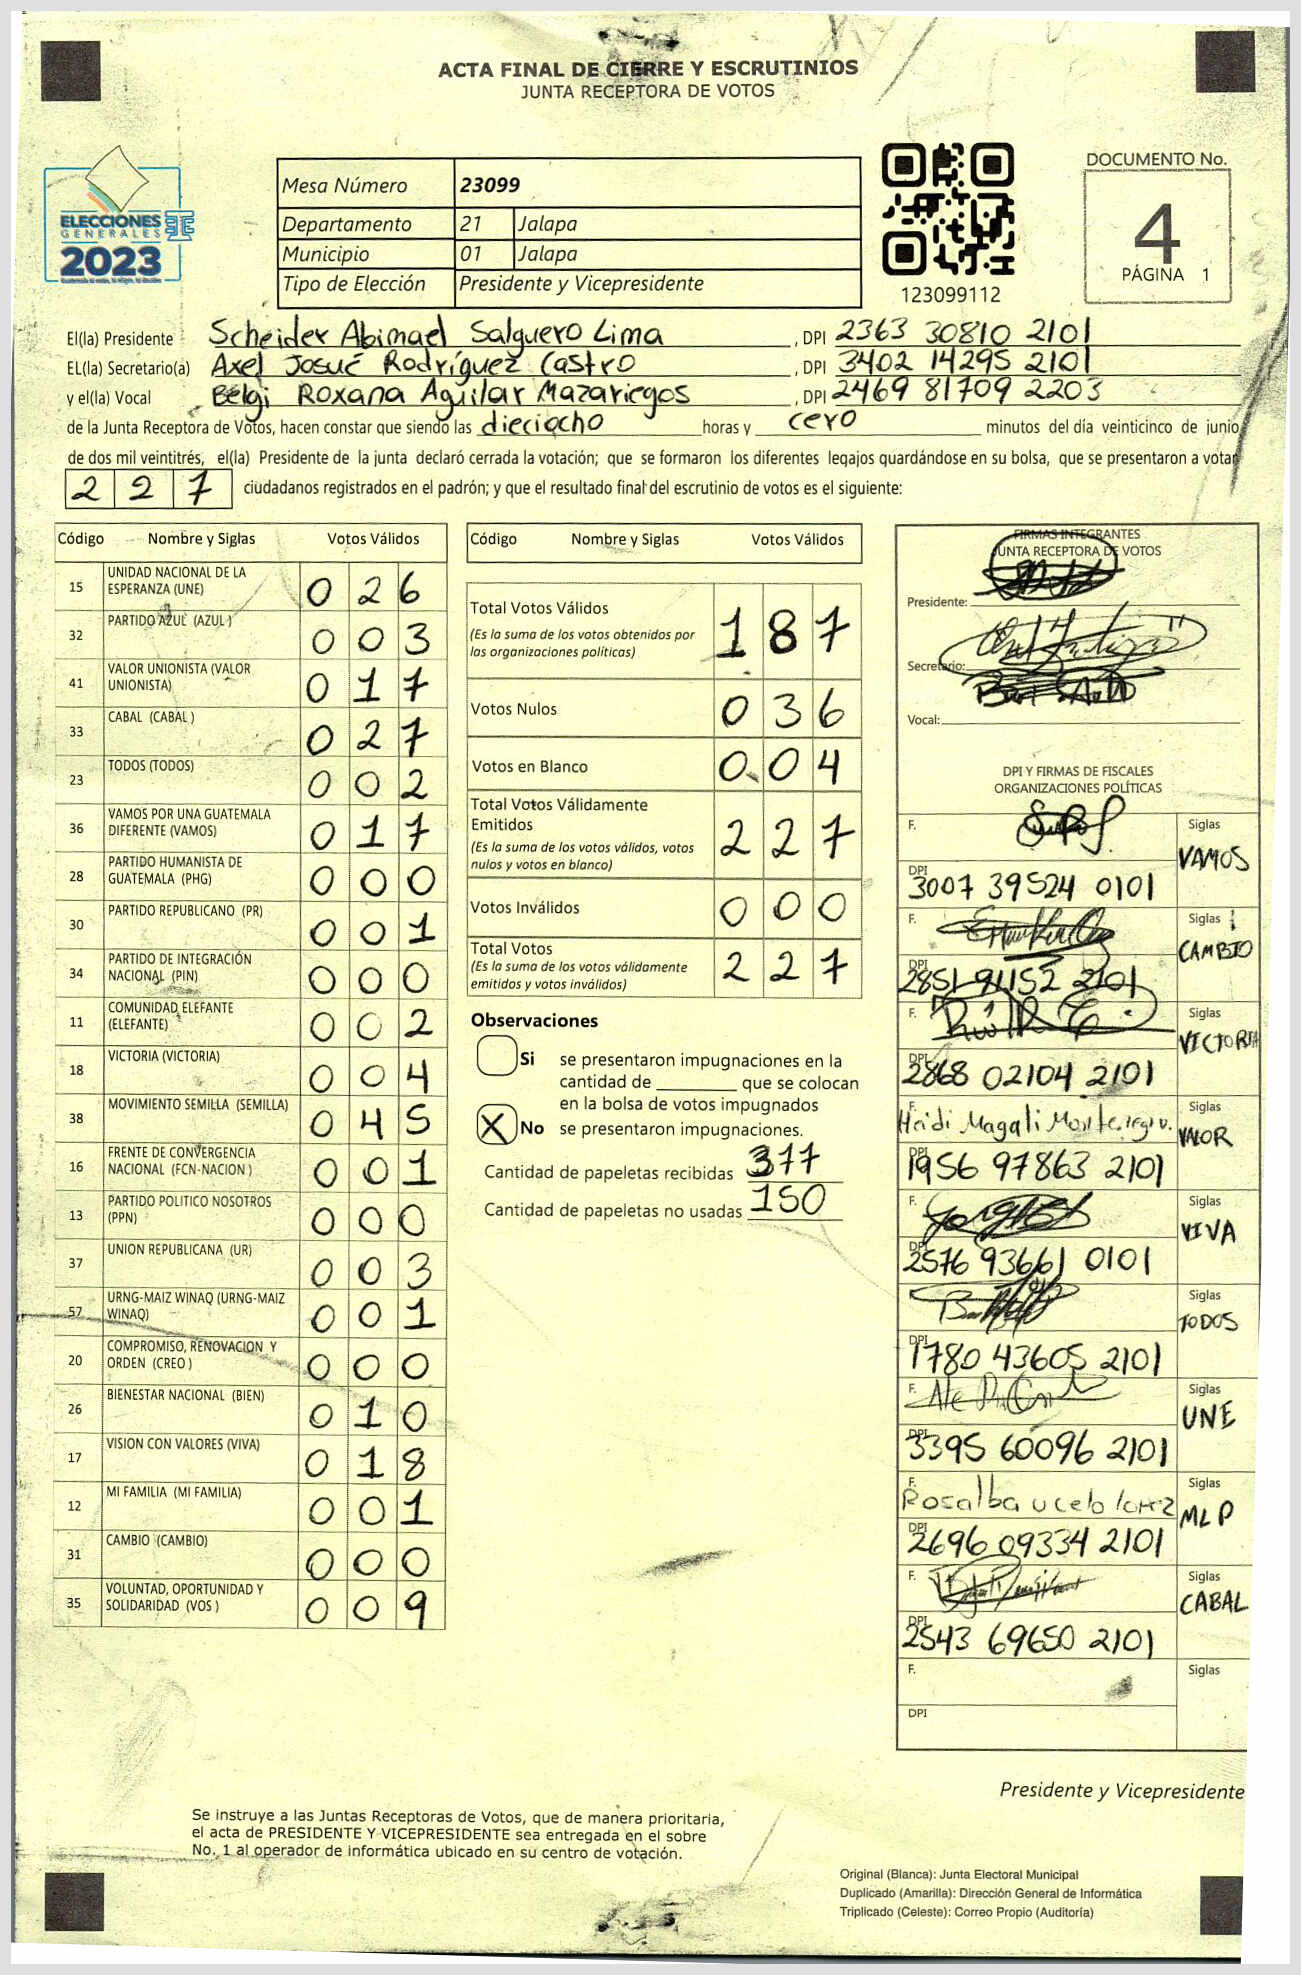 ACTA FINAL DE CIERRE Y ESCRUTINIOS
JUNTA RECEPTORA DE VOTOS
ELECCIONES
GENERALES
2023
Mesa Número 23099
Departamento 21 Jalapa
Municipio 01 Jalapa
Tipo de Elección Presidente y Vicepresidente
123099112
DOCUMENTO No.
4
PÁGINA 1
El(la) Presidente Scheider Abimael Salguero Lima, DPI 2363 30810 2101
EL(la) Secretario(a) Axel Josué Rodríguez Castro, DPI 3402 14295 2101
y el(la) Vocal Belgi Roxana Aguilar Mazariegos, DPI 2469 81709 2203
de la Junta Receptora de Votos, hacen constar que siendo las dieciocho horas y cero minutos del día veinticinco de junio
de dos mil veintitrés, el(la) Presidente de la junta declaró cerrada la votación; que se formaron los diferentes legajos quardándose en su bolsa, que se presentaron a votar
227 ciudadanos registrados en el padrón; y que el resultado final del escrutinio de votos es el siguiente:
Código Nombre y Siglas Votos Válidos
15 UNIDAD NACIONAL DE LA ESPERANZA (UNE) 026
32 PARTIDO AZUL (AZUL) 003
41 VALOR UNIONISTA (VALOR UNIONISTA) 017
33 CABAL (CABAL) 027
23 TODOS (TODOS) 002
36 VAMOS POR UNA GUATEMALA DIFERENTE (VAMOS) 017
28 PARTIDO HUMANISTA DE GUATEMALA (PHG) 000
30 PARTIDO REPUBLICANO (PR) 001
34 PARTIDO DE INTEGRACIÓN NACIONAL (PIN) 000
11 COMUNIDAD ELEFANTE (ELEFANTE) 002
18 VICTORIA (VICTORIA) 004
38 MOVIMIENTO SEMILLA (SEMILLA) 045
16 FRENTE DE CONVERGENCIA NACIONAL (FCN-NACION) 001
13 PARTIDO POLITICO NOSOTROS (PPN) 000
37 UNION REPUBLICANA (UR) 003
57 URNG-MAIZ WINAQ (URNG-MAIZ WINAQ) 001
20 COMPROMISO, RENOVACION Y ORDEN (CREO) 000
26 BIENESTAR NACIONAL (BIEN) 010
17 VISION CON VALORES (VIVA) 018
12 MI FAMILIA (MI FAMILIA) 001
31 CAMBIO (CAMBIO) 000
35 VOLUNTAD, OPORTUNIDAD Y SOLIDARIDAD (VOS) 009
Código Nombre y Siglas Votos Válidos
Total Votos Válidos 187
(Es la suma de los votos obtenidos por
las organizaciones políticas)
Votos Nulos 036
Votos en Blanco 004
Total Votos Válidamente
Emitidos 227
(Es la suma de los votos válidos, votos
nulos y votos en blanco)
Votos Inválidos 000
Total Votos 227
(Es la suma de los votos válidamente
emitidos y votos inválidos)
Observaciones
Si se presentaron impugnaciones en la
cantidad de ________ que se colocan
en la bolsa de votos impugnados
X No se presentaron impugnaciones.
Cantidad de papeletas recibidas 377
Cantidad de papeletas no usadas 150
FIRMAS INTEGRANTES
JUNTA RECEPTORA DE VOTOS
Presidente:
Secretario:
Vocal:
DPI Y FIRMAS DE FISCALES
ORGANIZACIONES POLÍTICAS
F. Siglas VAMOS
DPI 3007 39524 0101
F. Siglas CAMBIO
DPI 2851 91152 2101
F. Siglas VICTORIA
DPI 2868 02104 2101
F. Heidi Magali Montenegro. Siglas VALOR
DPI 1956 97863 2101
F. Siglas VIVA
DPI 2576 93661 0101
F. Siglas TODOS
DPI 1780 43605 2101
F. Siglas UNE
DPI 3395 60096 2101
F. Rosalba Ucelo Siglas MLP
DPI 2696 09334 2101
F. Siglas CABAL
DPI 2543 69650 2101
F. Siglas
DPI
Presidente y Vicepresidente
Se instruye a las Juntas Receptoras de Votos, que de manera prioritaria,
el acta de PRESIDENTE Y VICEPRESIDENTE sea entregada en el sobre
No. 1 al operador de informática ubicado en su centro de votación.
Original (Blanca): Junta Electoral Municipal
Duplicado (Amarilla): Dirección General de Informática
Triplicado (Celeste): Correo Propio (Auditoría)